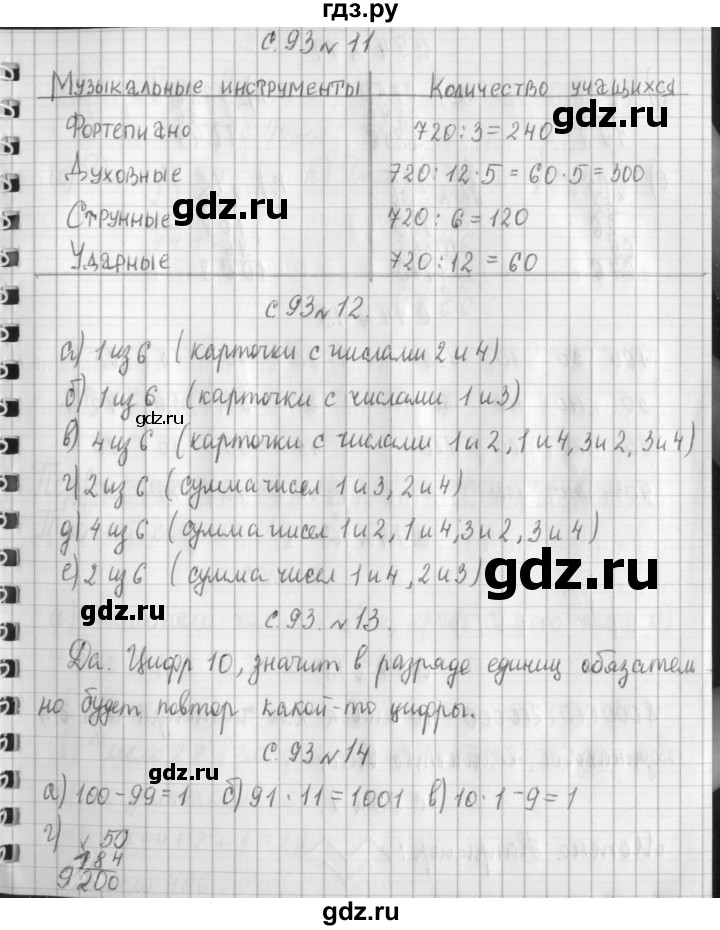 гдз.ру
с. 93 № 11.
Музыкальные инструменты Количество учащихся
Фортепиано 720 : 3 = 240
gdz.ru
Духовные 720 : 12 · 5 = 60 · 5 = 300
gdz.ru
Струнные 720 : 6 = 120
Ударные 720 : 12 = 60
с. 93 № 12.
а) 1 из 6 (карточки с числами 2 и 4)
б) 1 из 6 (карточки с числами 1 и 3)
gdz.ru
в) 4 из 6 (карточки с числами 1 и 2, 1 и 4, 3 и 2, 3 и 4)
г) 2 из 6 (сумма чисел 1 и 3, 2 и 4)
д) 4 из 6 (сумма чисел 1 и 2, 1 и 4, 3 и 2, 3 и 4)
е) 2 из 6 (сумма чисел 1 и 4, 2 и 3)
gdz.ru
gdz.ru
с. 93. № 13.
Да. Цифр 10, значит в разряде единиц обязатель-
но будет повтор какой-то цифры.
с. 93 № 14
gdz.ru
а) 100 - 99 = 1 б) 91 · 11 = 1001 в) 10 · 1 - 9 = 1
г) × 50
184
9200
gdz.ru
gdz.ru